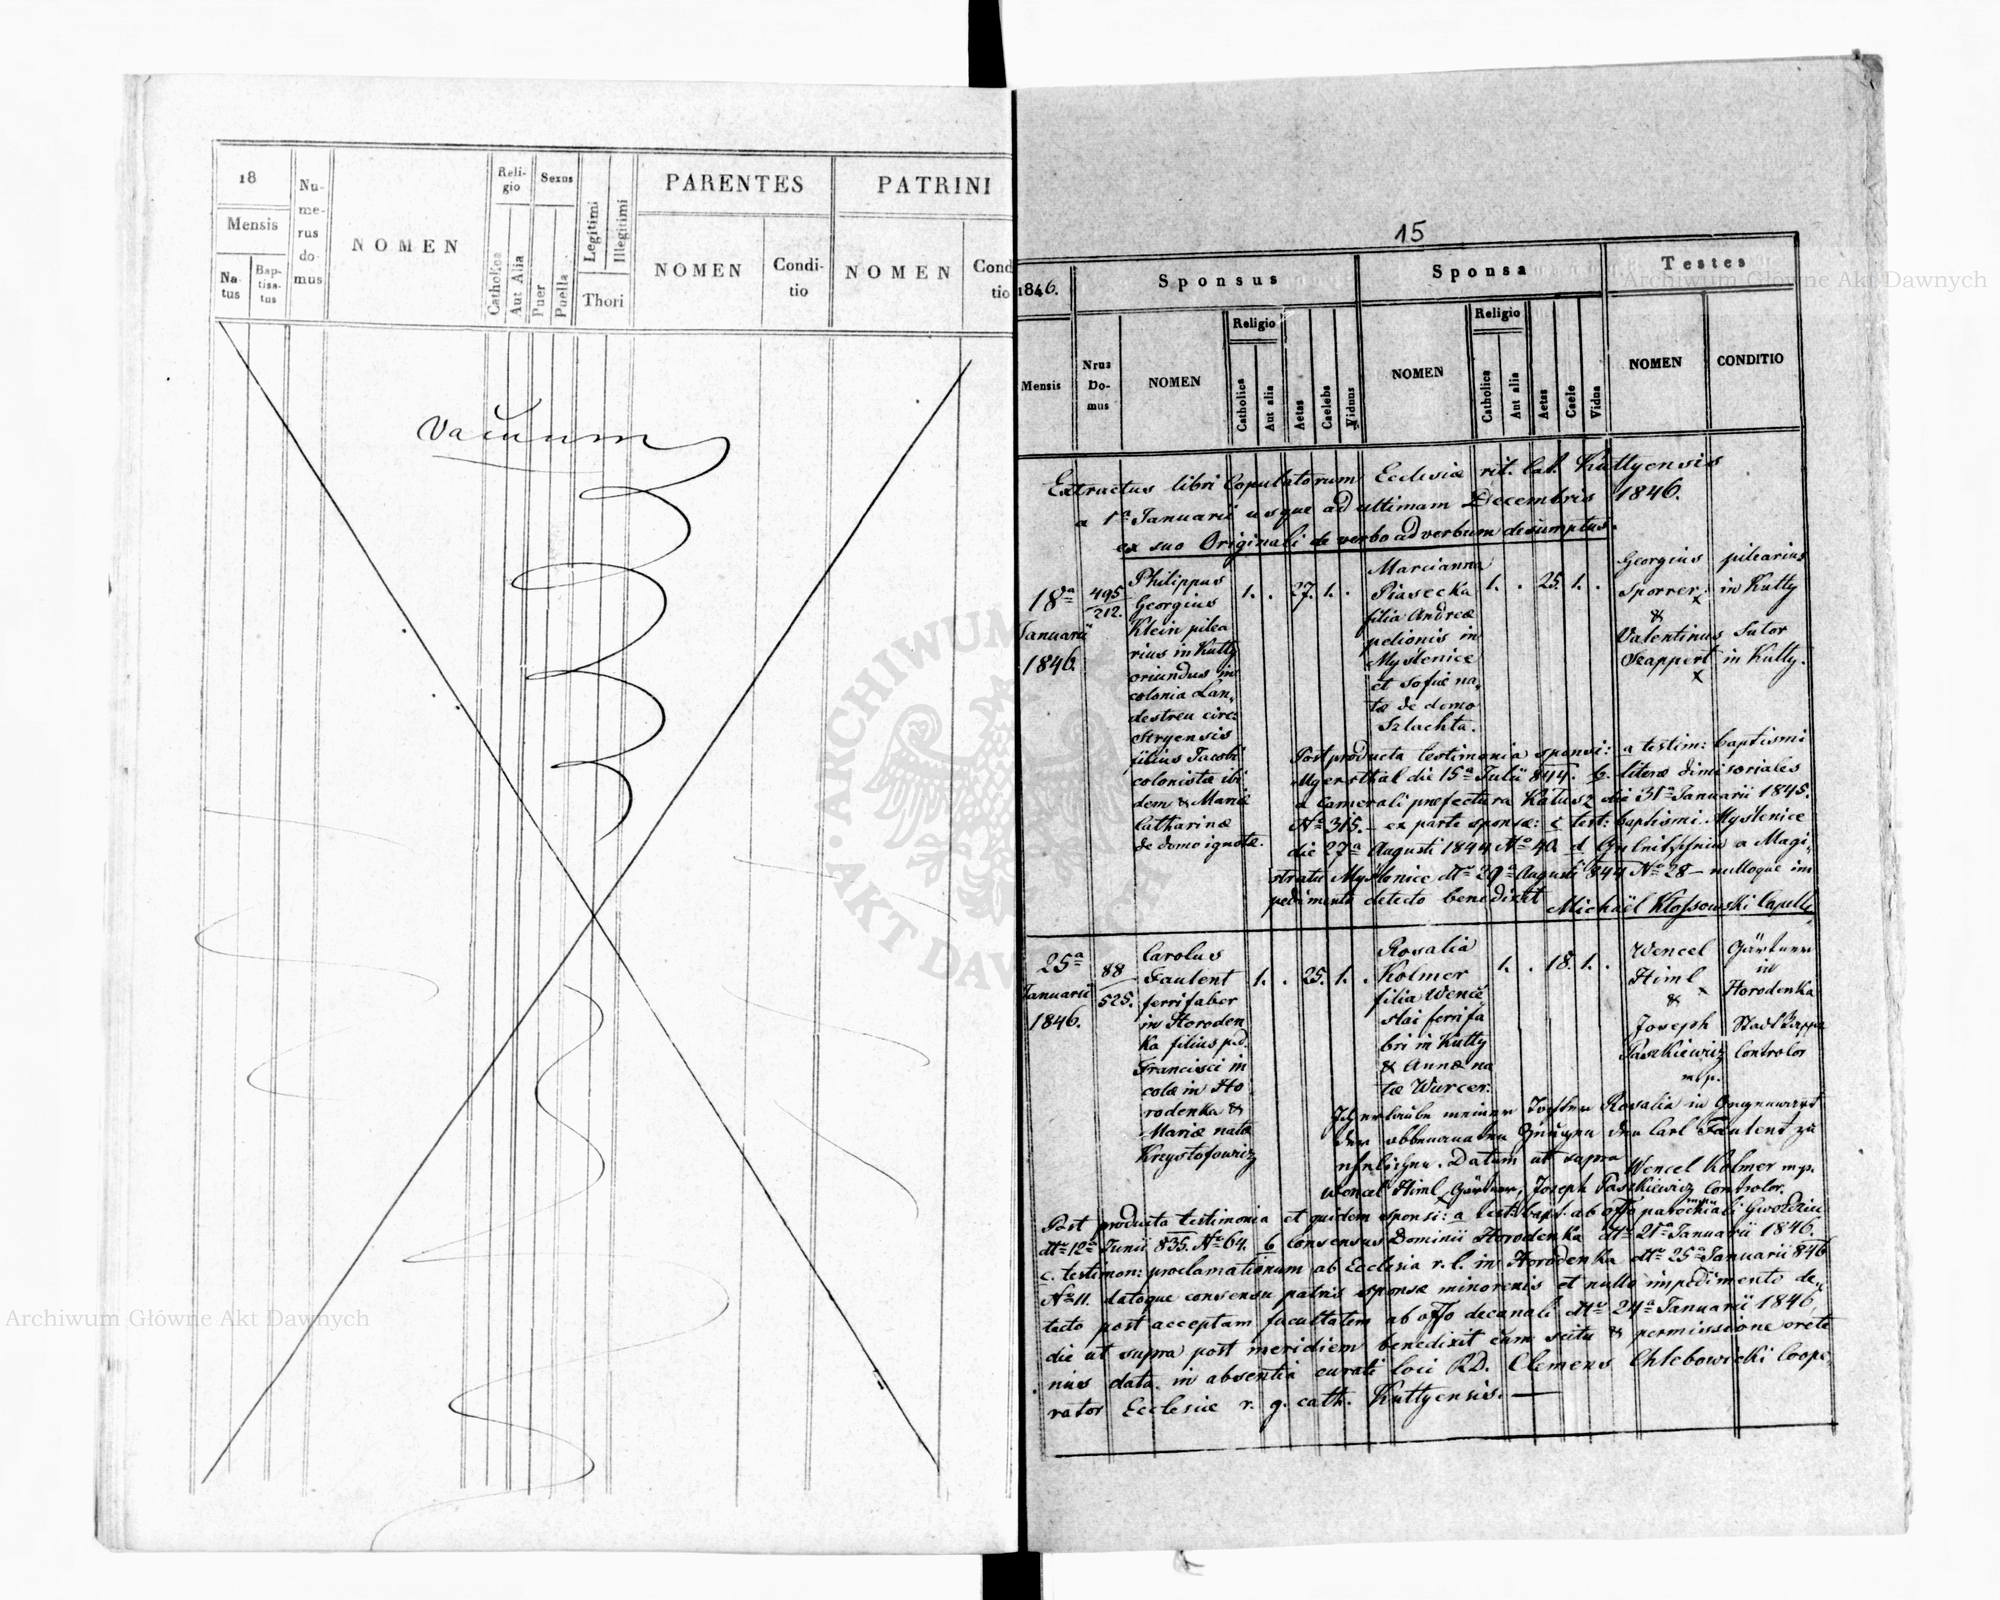 18
Mensis
Na-
tus
Bap-
tisa-
tus
Nu-
me-
rus
do-
mus
NOMEN
Reli-
gio
Catholica
Aut Alia
Sexus
Puer
Puella
Legitimi
Illegitimi
Thori
PARENTES
NOMEN
Condi-
tio
PATRINI
NOMEN
Cond
tio
Vacuum
15
1846.
Sponsus
Sponsa
Testes
Mensis
Nrus
Do-
mus
NOMEN
Religio
Catholica
Aut alia
Aetas
Caelebs
Viduus
NOMEN
Religio
Catholica
Aut alia
Aetas
Caele
Vidua
NOMEN
CONDITIO
Extractus libri Copulatorum Ecclesiæ rit. lat. Kuttyensis
a 1ª Januarii usque ad ultimam Decembris 1846.
ex suo Originali de verbo ad verbum desumptus.
18ª
Januarii
1846.
495
212.
Philippus
Georgius
Klein pilea
rius in Kutty
oriundus in
colonia Lan,
destreu circ:
Stryensis
filius Jacobi
colonistæ ibi
dem & Mariæ
Catharinæ
de domo ignotæ.
1. . 27. 1. .
Marcianna
Piasecka
filia Andreæ
pelionis in
Myslenice
et Sofiæ na,
tæ de domo
Szlachta.
1. . 25. 1. .
Georgius
Sporrer x
&
Valentinus
Szappert
x
pilearius
in Kutty
Sutor
in Kutty.
Post producta testimonia sponsi: a testim: baptismi
Mgersthal die 15ª Julii 844. b. literæ dimisoriales
a Camerali prefectura Kałusz die 31ª Januarii 1845.
Nº 315. – ex parte sponsæ: c test: baptismi Myslenice
die 27ª Augusti 1844 Nº 40. d a Magi,
stratu Myslenice dtº 29ª Augusti 844 Nº 28 – nulloque im
pedimento detecto benedixit Michaël Kłossowski Capell
25ª
Januarii
1846.
88
525.
Carolus
Fautent
ferri faber
in Horoden
ka filius pd.
Francisci in
colæ in Ho
rodenka &
Mariæ natæ
Krzysztofowicz
1. . 25. 1. .
Rosalia
Kolmer
filia Wence
slai ferrifa
bri in Kutty
& Annæ na
tæ Wurcer.
1. . 18. 1. .
Wencel
Himl x
&
Joseph
Paszkiewicz
mp.
Gärtner
in
Horodenka
Stadt
Controlor
Ich erlaube meiner Tochter Rosalia in Gegenwart
der obbenannten Zeugen den Carl Fautent zu
ehelichen. Datum ut supra Wencel Kolmer mp.
Wencel Himl Gärtner, Joseph Paszkiewicz Controlor.
Post producta testimonia et quidem sponsi: a test: bapt: ab offo parochiali Gwoździec
dtº 12ª Junii 835. Nº 64. b Consensus Dominii Horodenka dtº 21ª Januarii 1846.
c. testimon: proclamationum ab Ecclesia r. l. in Horodenka dtº 25ª Januarii 846
Nº 11. datoque consensu patris sponsæ minorenis et nullo impedimento de,
tecto post acceptam facultatem ab offo decanali dtº 24ª Januarii 1846,
die ut supra post meridiem benedixit cum scitu & permissione orete
nus data in absentia curati loci RD. Clemens Chlebowicki Coope
rator Ecclesiæ r. g. cath. Kuttyensis. —
ARCHIWUM
AKT DAW
Archiwum Główne Akt Dawnych
Archiwum Główne Akt Dawnych